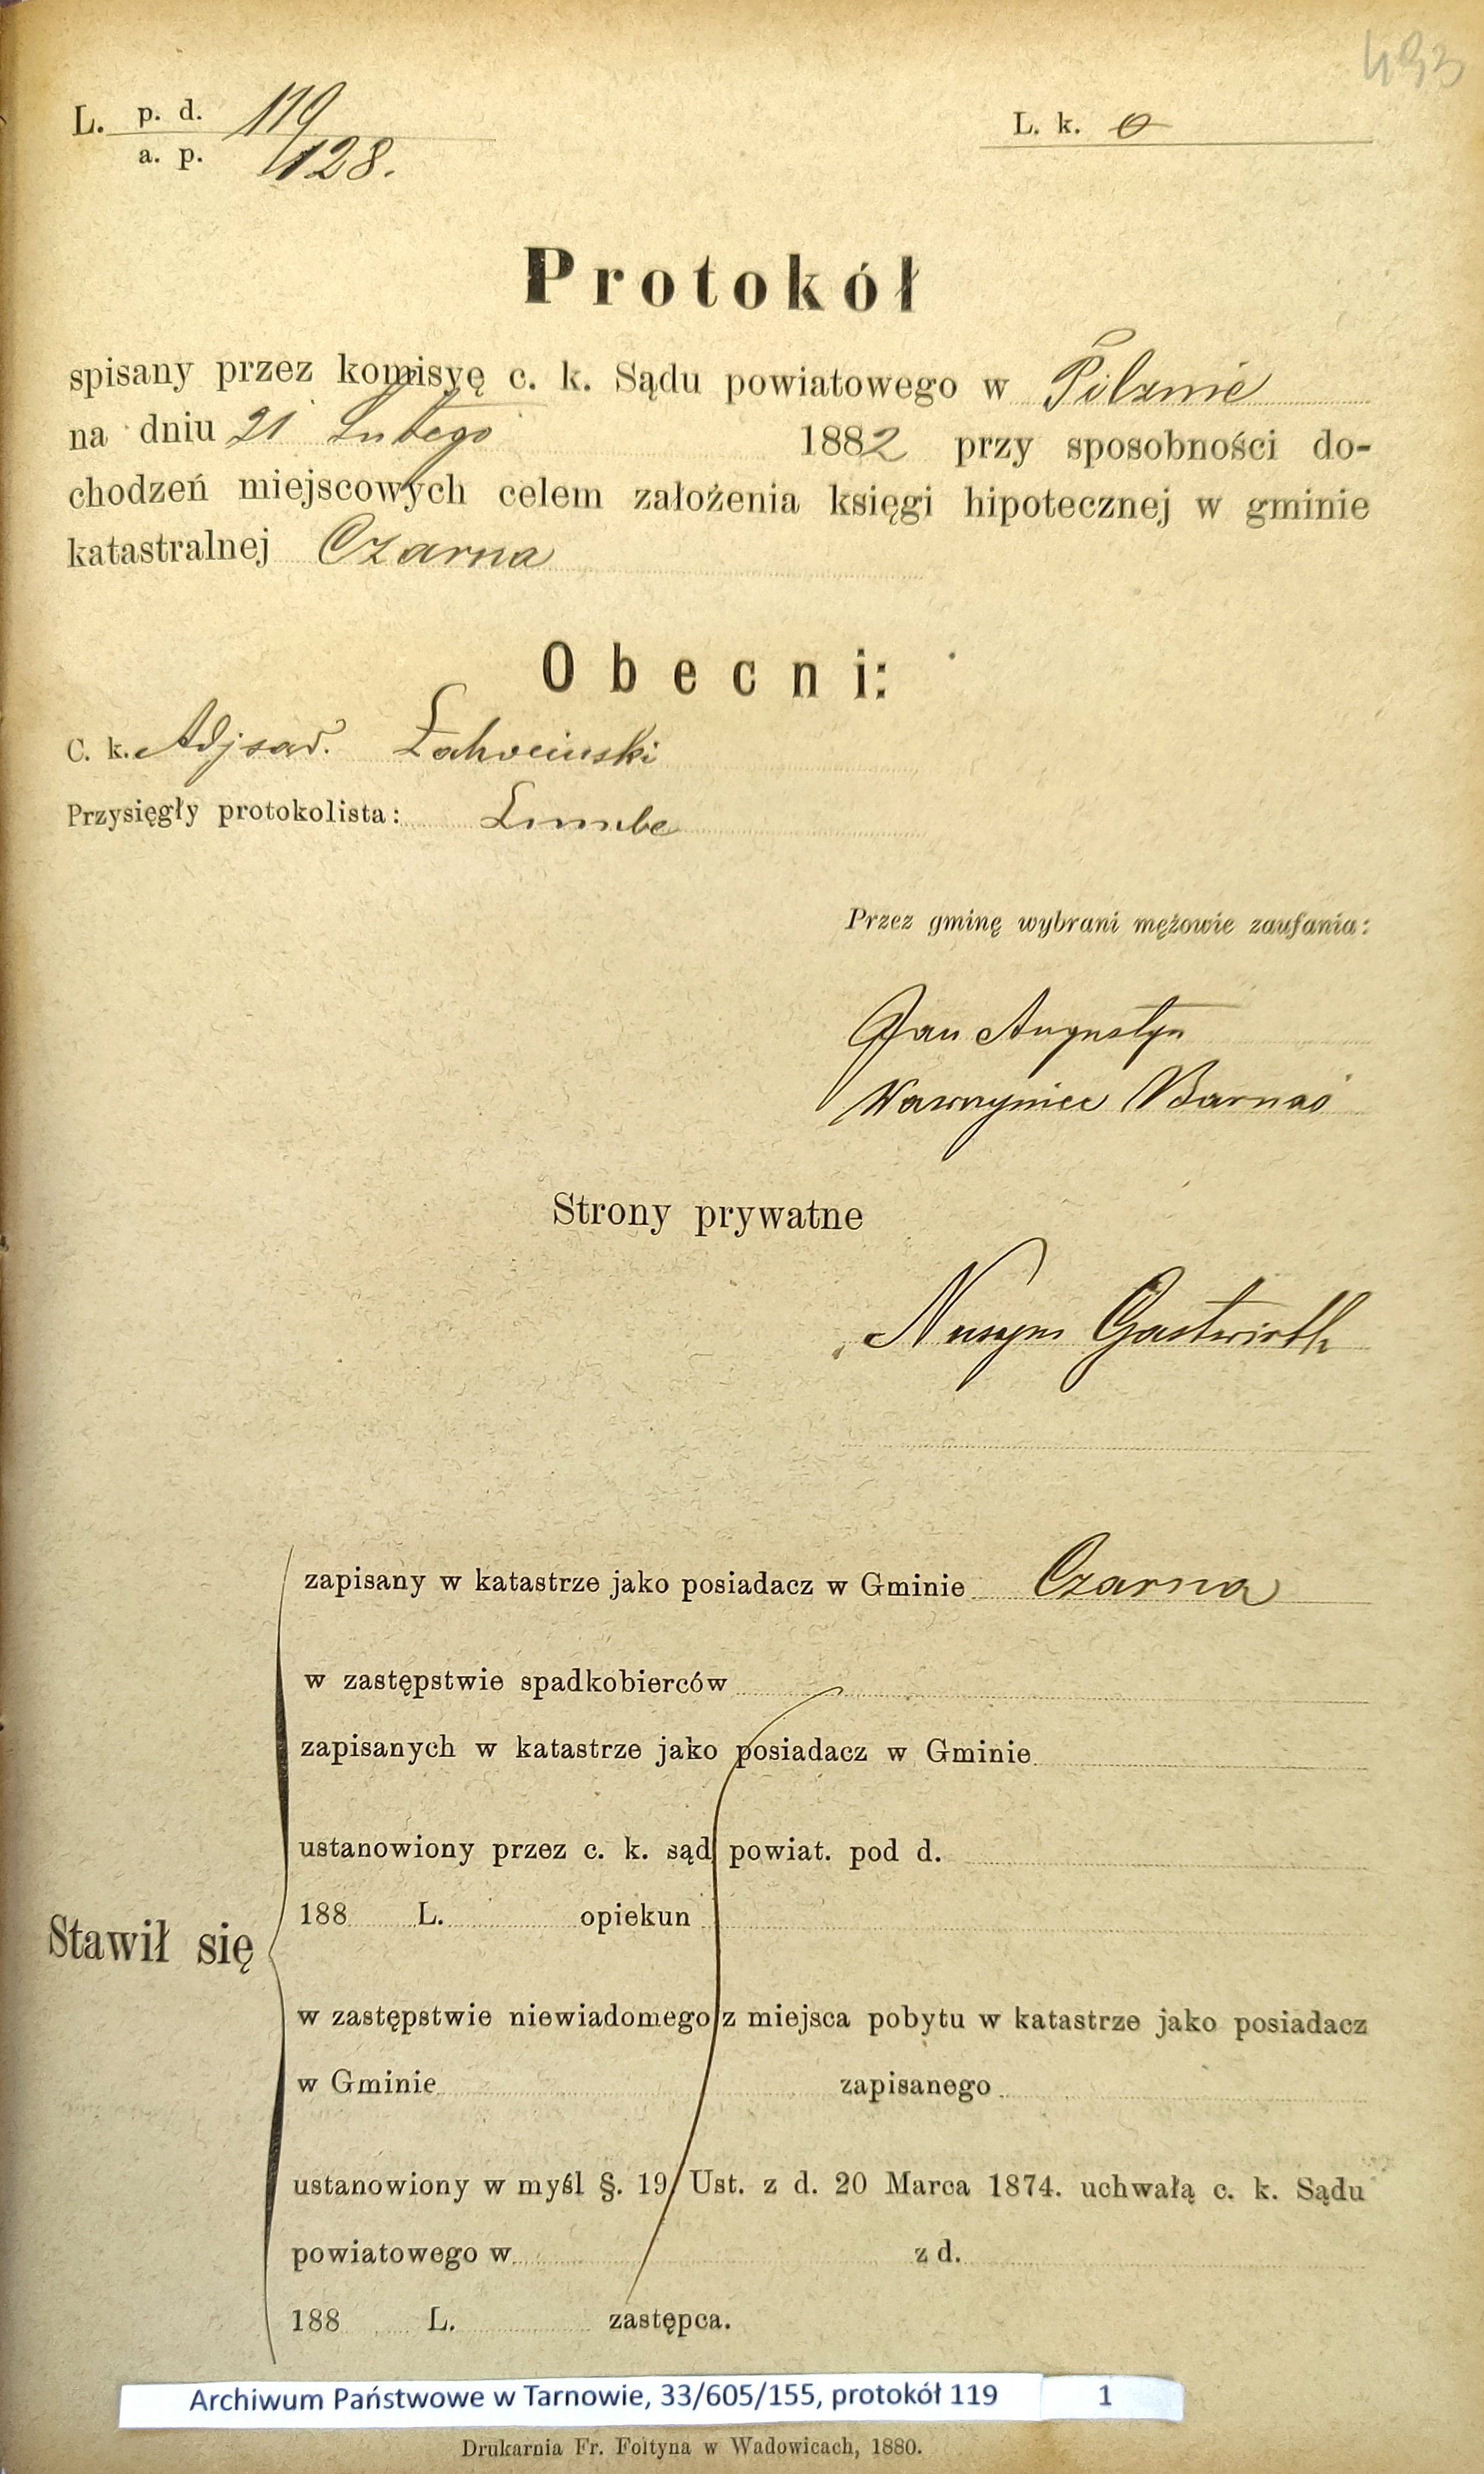 493
L. p. d. 119
a. p. 128.
L. k. 0
Protokół
spisany przez komisyę c. k. Sądu powiatowego w Pilznie
na dniu 21 Lutego 1882 przy sposobności do-
chodzeń miejscowych celem założenia księgi hipotecznej w gminie
katastralnej Czarna
Obecni:
C. k. Adj sąd.
Przysięgły protokolista:
Przez gminę wybrani mężowie zaufania:
Jan Augustyn
Wawrzyniec Barnaś
Strony prywatne
Nusym Gastwirth
zapisany w katastrze jako posiadacz w Gminie Czarna
w zastępstwie spadkobierców
zapisanych w katastrze jako posiadacz w Gminie
ustanowiony przez c. k. sąd powiat. pod d.
188 L. opiekun
Stawił się
w zastępstwie niewiadomego z miejsca pobytu w katastrze jako posiadacz
w Gminie zapisanego
ustanowiony w myśl §. 19 Ust. z d. 20 Marca 1874. uchwałą c. k. Sądu
powiatowego w z d.
188 L. zastępca.
Archiwum Państwowe w Tarnowie, 33/605/155, protokół 119 1
Drukarnia Fr. Foltyna w Wadowicach, 1880.